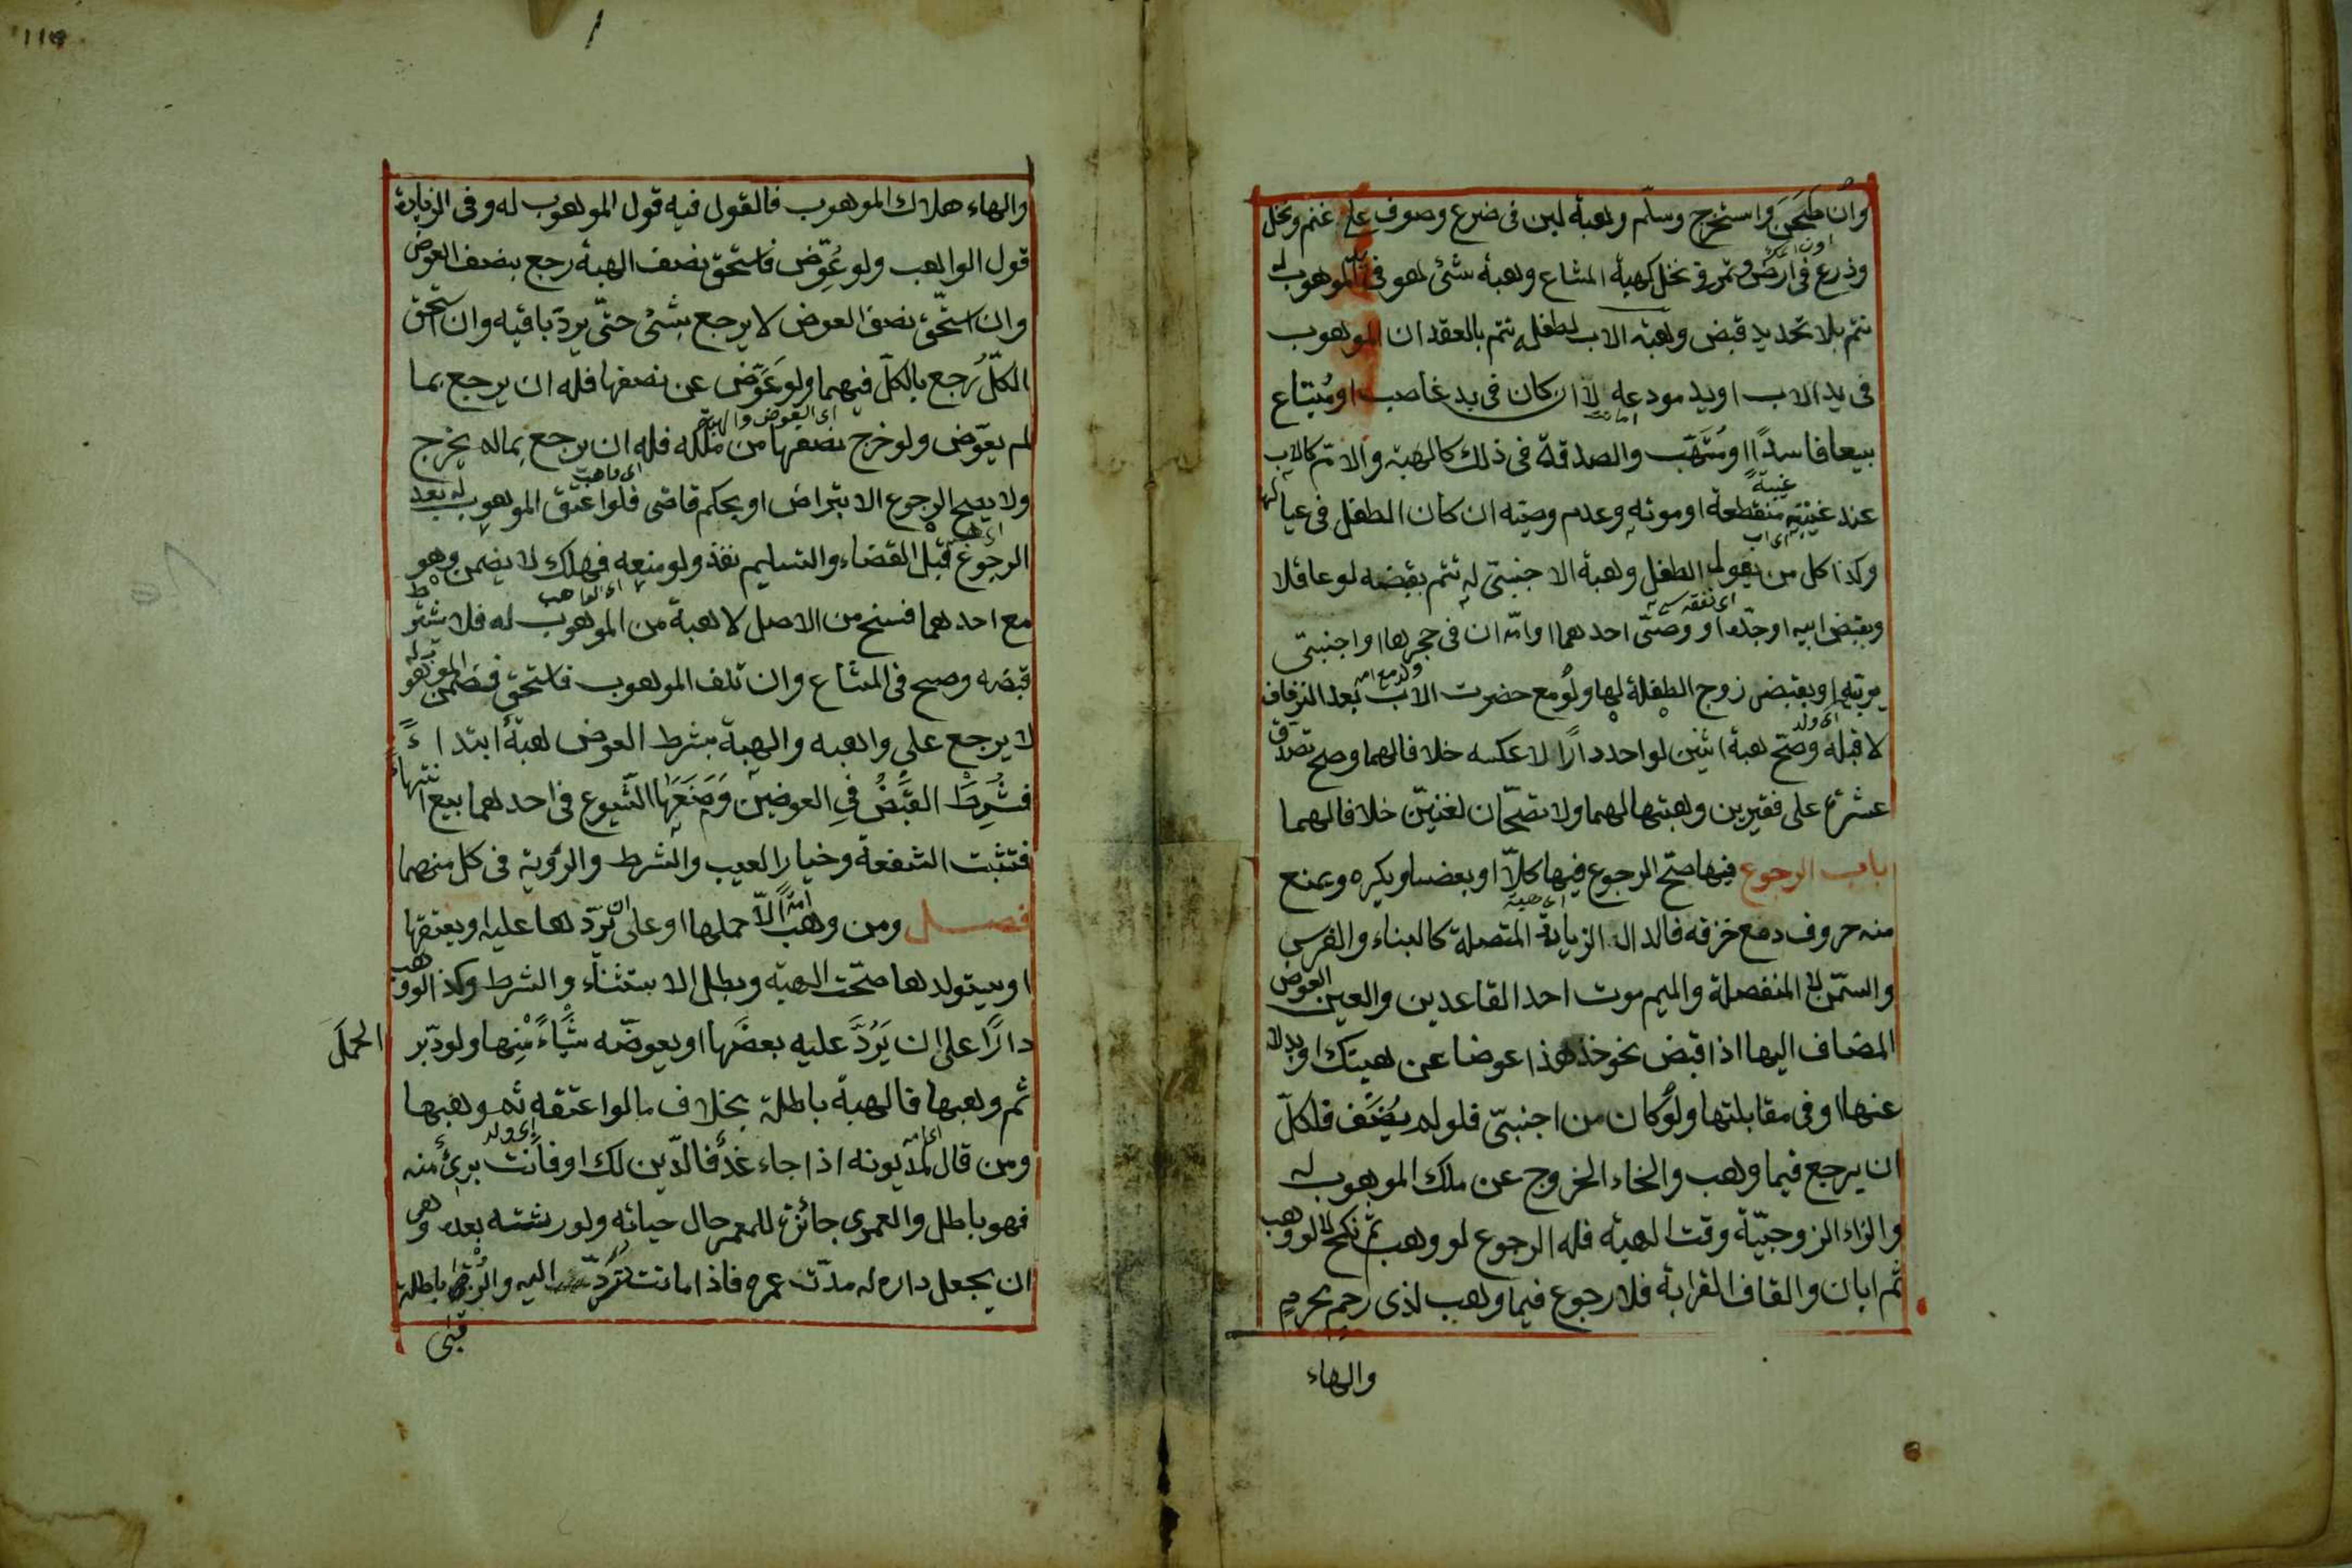 وان طحن واستخرج وسلم وهبة لبن فى ضرع وصوف على غنم ونخل
وزرع فى ارض وتمر فى نخل كهبة المشاع وهبة شئ هو فى يد الموهوب له
تتم بلا تجديد قبض وهبة الاب لطفله تتم بالعقد ان الموهوب
فى يد الاب او يد مودعه لا ان كان فى يد غاصب او مُبتاع
بيعا فاسدًا او مُتّهب والصدقة فى ذلك كالهبة والام كالاب
عند غيبته غيبةً منقطعة او موته وعدم وصيّه ان كان الطفل فى عيالها
وكذا كل من يعول الطفل وهبة الاجنبىّ له تتم بقبضه لو عاقلا
وبقبض ابيه او جدّه او وصىّ احدهما او امّه ان فى حجرها او اجنبىّ
يربّيه او بقبض زوج الطفلة لها ولو مع حضرت الاب بعد الزفاف
لا قبله وصحّ هبة اثنين لواحد دارًا لا عكسه خلافا لهما وصح تصدّق
عشرة على فقيرين وهبتها لهما ولا تصحّان لغنيّين خلافا لهما
باب الرجوع فيها صحّ الرجوع فيها كلّا او بعضا ويكره ويمنع
منه حروف دمع خزقه فالدال الزيادة المتصلة كالبناء والغرس
والسمن لا المنفصلة والميم موت احد العاقدين والعين العوض
المضاف اليها اذا قبض نحو خذ هذا عوضا عن هبتك او بدلا
عنها او فى مقابلتها ولو كان من اجنبىّ فلو لم يُضَف فلكلّ
ان يرجع فيما وهب والخاء الخروج عن ملك الموهوب له
والزاء الزوجيّة وقت الهبة فله الرجوع لو وهب ثم نكح لا لو وهب
ثم ابان والقاف القرابة فلا رجوع فيما وهب لذى رحم محرم
والهاء
والهاء هلاك الموهوب فالقول فيه قول الموهوب له وفى الزيادة
قول الواهب ولو عُوِّض فاستحق نصف الهبة رجع بنصف العوض
وان استحق نصف العوض لا يرجع بشئ حتّى يردّ باقيه وان استحق
الكلّ رجع بالكلّ فيهما ولو عَوَّض عن نصفها فله ان يرجع بما
لم يعوّض ولو خرج نصفها من ملكه فله ان يرجع بما لم يخرج
ولا يصح الرجوع الا بتراض او بحكم قاضى فلو اعتق الموهوب له بعد
الرجوع قبل القضاء والتسليم نفذ ولو منعه فهلك لا يضمن وهو
مع احدهما فسخ من الاصل لا هبة من الموهوب له فلا شترط
قبضه وصح فى المشاع وان تلف الموهوب فاستحق فضمن الموهوب له
لا يرجع على واهبه والهبة بشرط العوض هبة ابتداءً
فشُرِطَ القبضُ فى العوضين وَمَنَعَهَا الشيوع فى احدهما بيع انتهاءً
فتثبت الشفعة وخيار العيب والشرط والرؤية فى كل منهما
فصل ومن وهب امة الّا حملها او على ان تردّها عليه او يعتقها
او يستولدها صحّت الهبة وبطل الاستثناء والشرط وكذا لو وهب
دارًا على ان يَرُدَّ عليه بعضَها او يعوضّه شَيْاءً مِنها ولو دبّر الحملَ
ثم وهبها فالهبة باطلة بخلاف ما لو اعتقه ثم وهبها
ومن قال لمديونه اذا جاء غدٌ فالدّين لك او فانت برئ منه
فهو باطل والعمرى جائزة للمعمر حال حياته ولورثته بعده وهى
ان يجعل داره له مدّت عمره فاذا مات تُرَدّ اليه والرُقبى باطلة